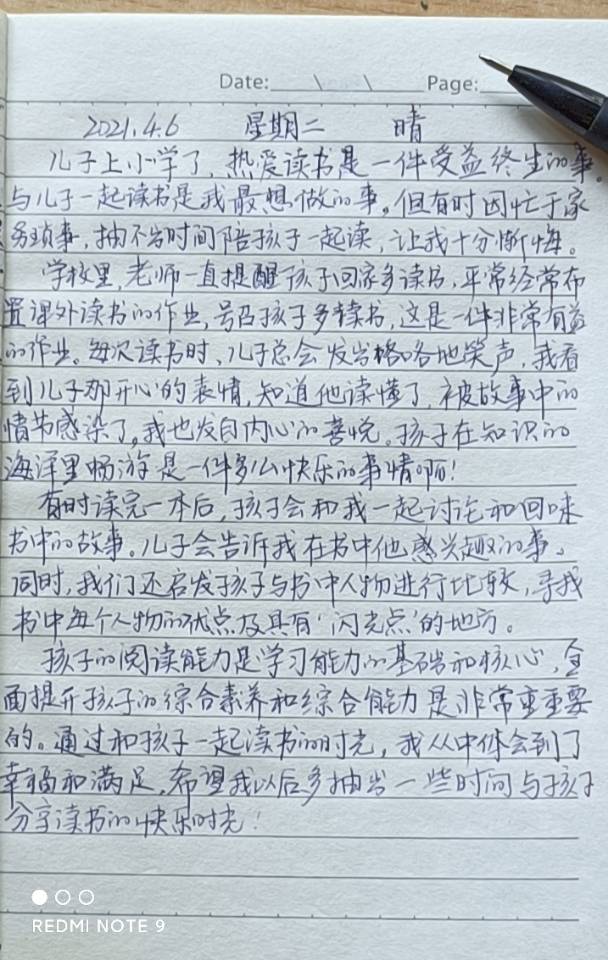 Date: \ \ Page:
2021.4.6 星期二 晴
儿子上小学了，热爱读书是一件受益终生的事。
与儿子一起读书是我最想做的事。但有时因忙于家
务琐事，抽不出时间陪孩子一起读，让我十分惭悔。
学校里，老师一直提醒孩子回家多读书，平常经常布
置课外读书的作业，号召孩子多读书，这是一件非常有益
的作业。每次读书时，儿子总会发出格咯地笑声，我看
到儿子那开心的表情，知道他读懂了，被故事中的
情节感染了，我也发自内心的喜悦。孩子在知识的
海洋里畅游是一件多么快乐的事情啊！
有时读完一本后，孩子会和我一起讨论和回味
书中的故事。儿子会告诉我在书中他感兴趣的事。
同时，我们还启发孩子与书中人物进行比较，寻找
书中每个人物的优点及具有‘闪光点’的地方。
孩子的阅读能力是学习能力的基础和核心，全
面提升孩子的综合素养和综合能力是非常重要
的。通过和孩子一起读书的时光，我从中体会到了
幸福和满足，希望我以后多抽出一些时间与孩子
分享读书的快乐时光！
REDMI NOTE 9